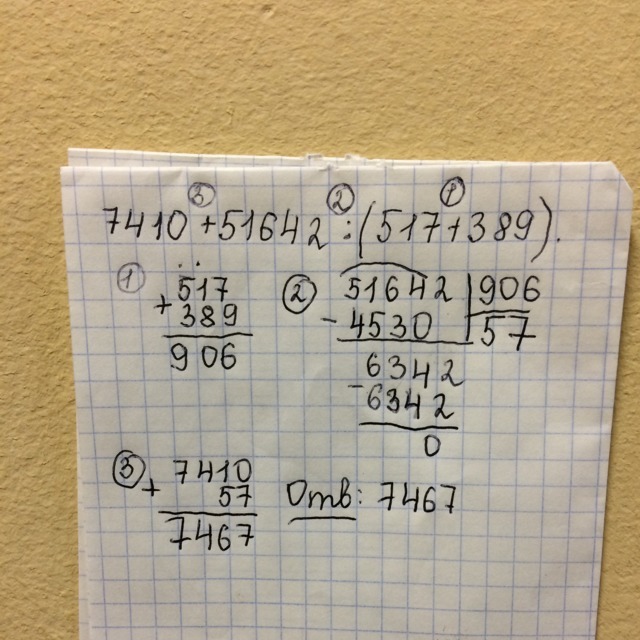 ③ ② ①
7410+51642:(517+389).
① 517
+ 389
906
② 51642 | 906
- 4530 57
6342
- 6342
0
③ 7410
+ 57
7467
Отв: 7467